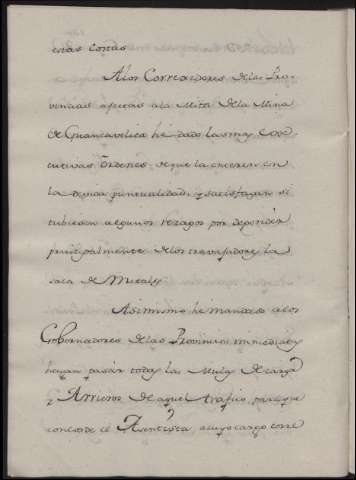 estas cosas
A los Corregidores de las Pro-
vincias afectas a la Mita de la Mina
de Guancavelica hé dado las mas
cutivas Ordenes de que la enteren en
la devida puntualidad y satisfagan si
tubiesen algunos rezagos por depender
principalmente de los travajadores la
saca de Metales
Asimismo he mandado a los
Governadores de las Provincias immediatas
hagan pasar todas las Mulas de carga
y Arrieros de aquel trafico, para que
con el Asentista, a cuyo cargo corre